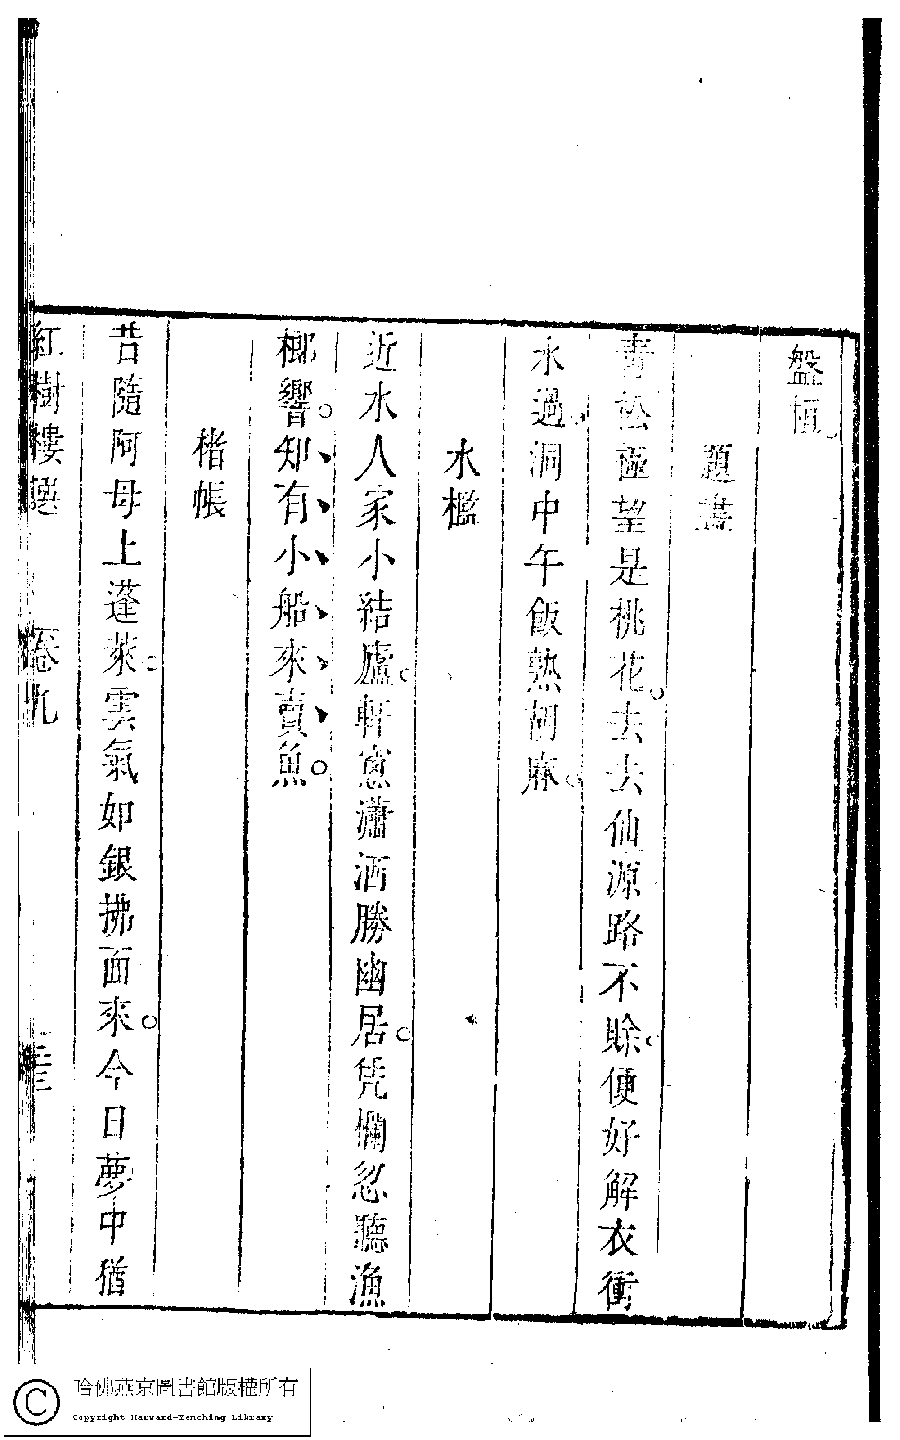 盤桓
題畫
青松極望是桃花去去仙源路不賒便好解衣衝
水過洞中午飯熟胡麻
水檻
近水人家小結廬軒窻瀟洒勝幽居凭欄忽聽漁
榔響知有小船來賣魚
楮帳
昔隨阿母上蓬萊雲氣如銀拂面來今日夢中猶
紅樹樓選 卷九
哈佛燕京圖書館版權所有
Copyright Harvard-Yenching Library